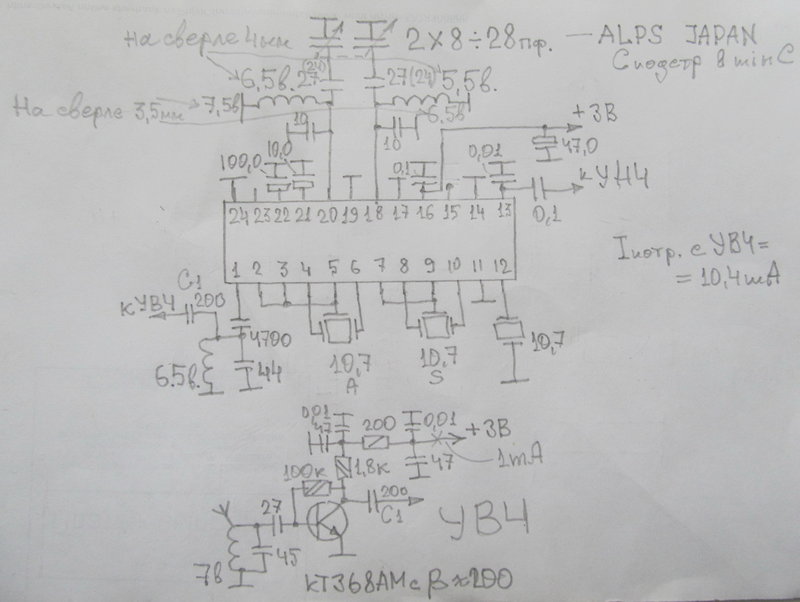 На сверле 4мм
2 × 8 ÷ 28 пф. — ALPS JAPAN
С подстр 8 min C
6,5в. 27 (24) 27 (24) 5,5в.
На сверле 3,5мм 7,5в 6,5в
10 10
+3В
47,0
100,0 10,0 0,1 0,01
к УНЧ
0,1
24 23 22 21 20 19 18 17 16 15 14 13
1 2 3 4 5 6 7 8 9 10 11 12
Iпотр. с УВЧ =
= 10,4 mA
C1
к УВЧ 200
4700
6.5в. 44
10,7 10,7 10,7
A S
0,01 47 200 0,01
+3В
100к 1,8к 47 1mA
27 200
C1
УВЧ
7в 45
КТ368АМ с β≈200